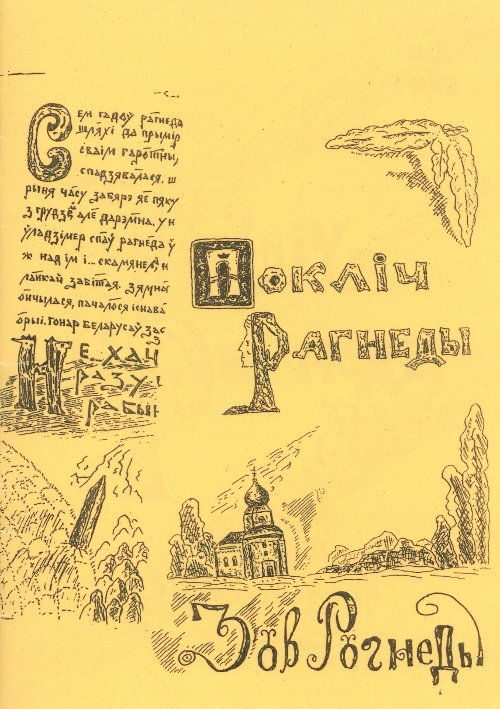 Сем гадоў Рагнеда
шляхі да прымір
сваім гаротны,
спадзявалася, ш
рыня часу забярэ яе пяку
з грудзей але дарэмна. Ун
Уладзімер спаў Рагнеда ў
ж над ім і... скамянела н
ланкай забітая. Зямно
ончылася, пачалося існава
орыі. Гонар беларусаў, зас
Не хач
разу
рабын
Покліч
Рагнеды
Зов Рогнеды